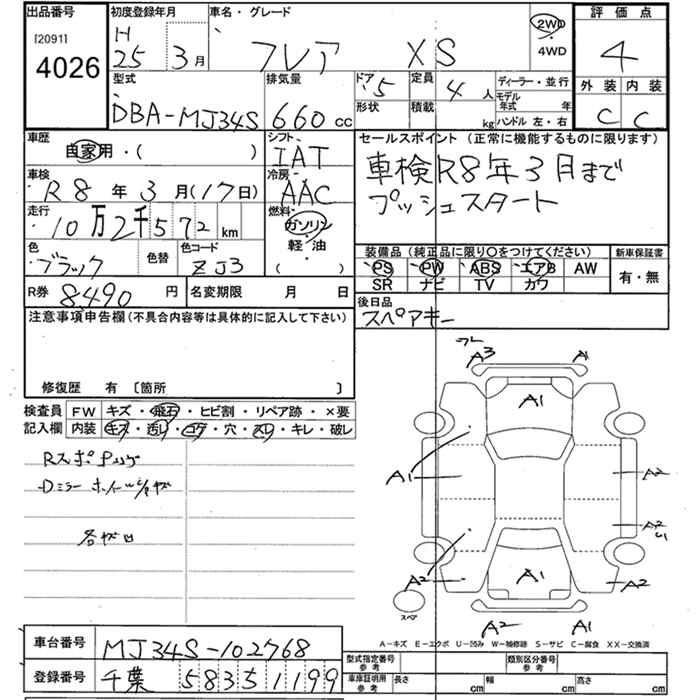 出品番号
[2091]
4026
初度登録年月
H
25 3月
車名・グレード
フレア XS
2WD
4WD
評価点
4
外装 内装
C C
型式
DBA-MJ34S
排気量
660 cc
ドア
5
定員
4 人
形状
積載
kg
ディーラー・並行
モデル年式 年
ハンドル 左・右
車歴
自家用・( )
シフト
IAT
車検
R8 年 3 月(17日)
冷房
AAC
走行
10万2千572 km
燃料
ガソリン
軽・油
( )
色
ブラック
色替
色コード
ZJ3
R券 8,490 円
名変期限 月 日
セールスポイント (正常に機能するものに限ります)
車検R8年3月まで
プッシュスタート
装備品(純正品に限り○をつけてください)
PS PW ABS エアB AW
SR ナビ TV カワ
新車保証書
有・無
後日品
スペアキー
注意事項申告欄(不具合内容等は具体的に記入して下さい)
修復歴 有 〔箇所 〕
検査員
記入欄
FW キズ・飛石・ヒビ割・リペア跡・×要
内装 キズ・汚レ・コゲ・穴・スレ・キレ・破レ
Dミラー
各ザロ
A3 A1
A1
A1
A2
A2
A2 A1 A2
スペア
A2 A1
A−キズ E−エクボ U−凹み W−補修跡 S−サビ C−腐食 XX−交換済
車台番号 MJ34S-102768
登録番号 千葉 583 5 1199
型式指定番号
参考
類別区分番号
参考
車庫証明用
参考
長さ cm 幅 cm 高さ cm